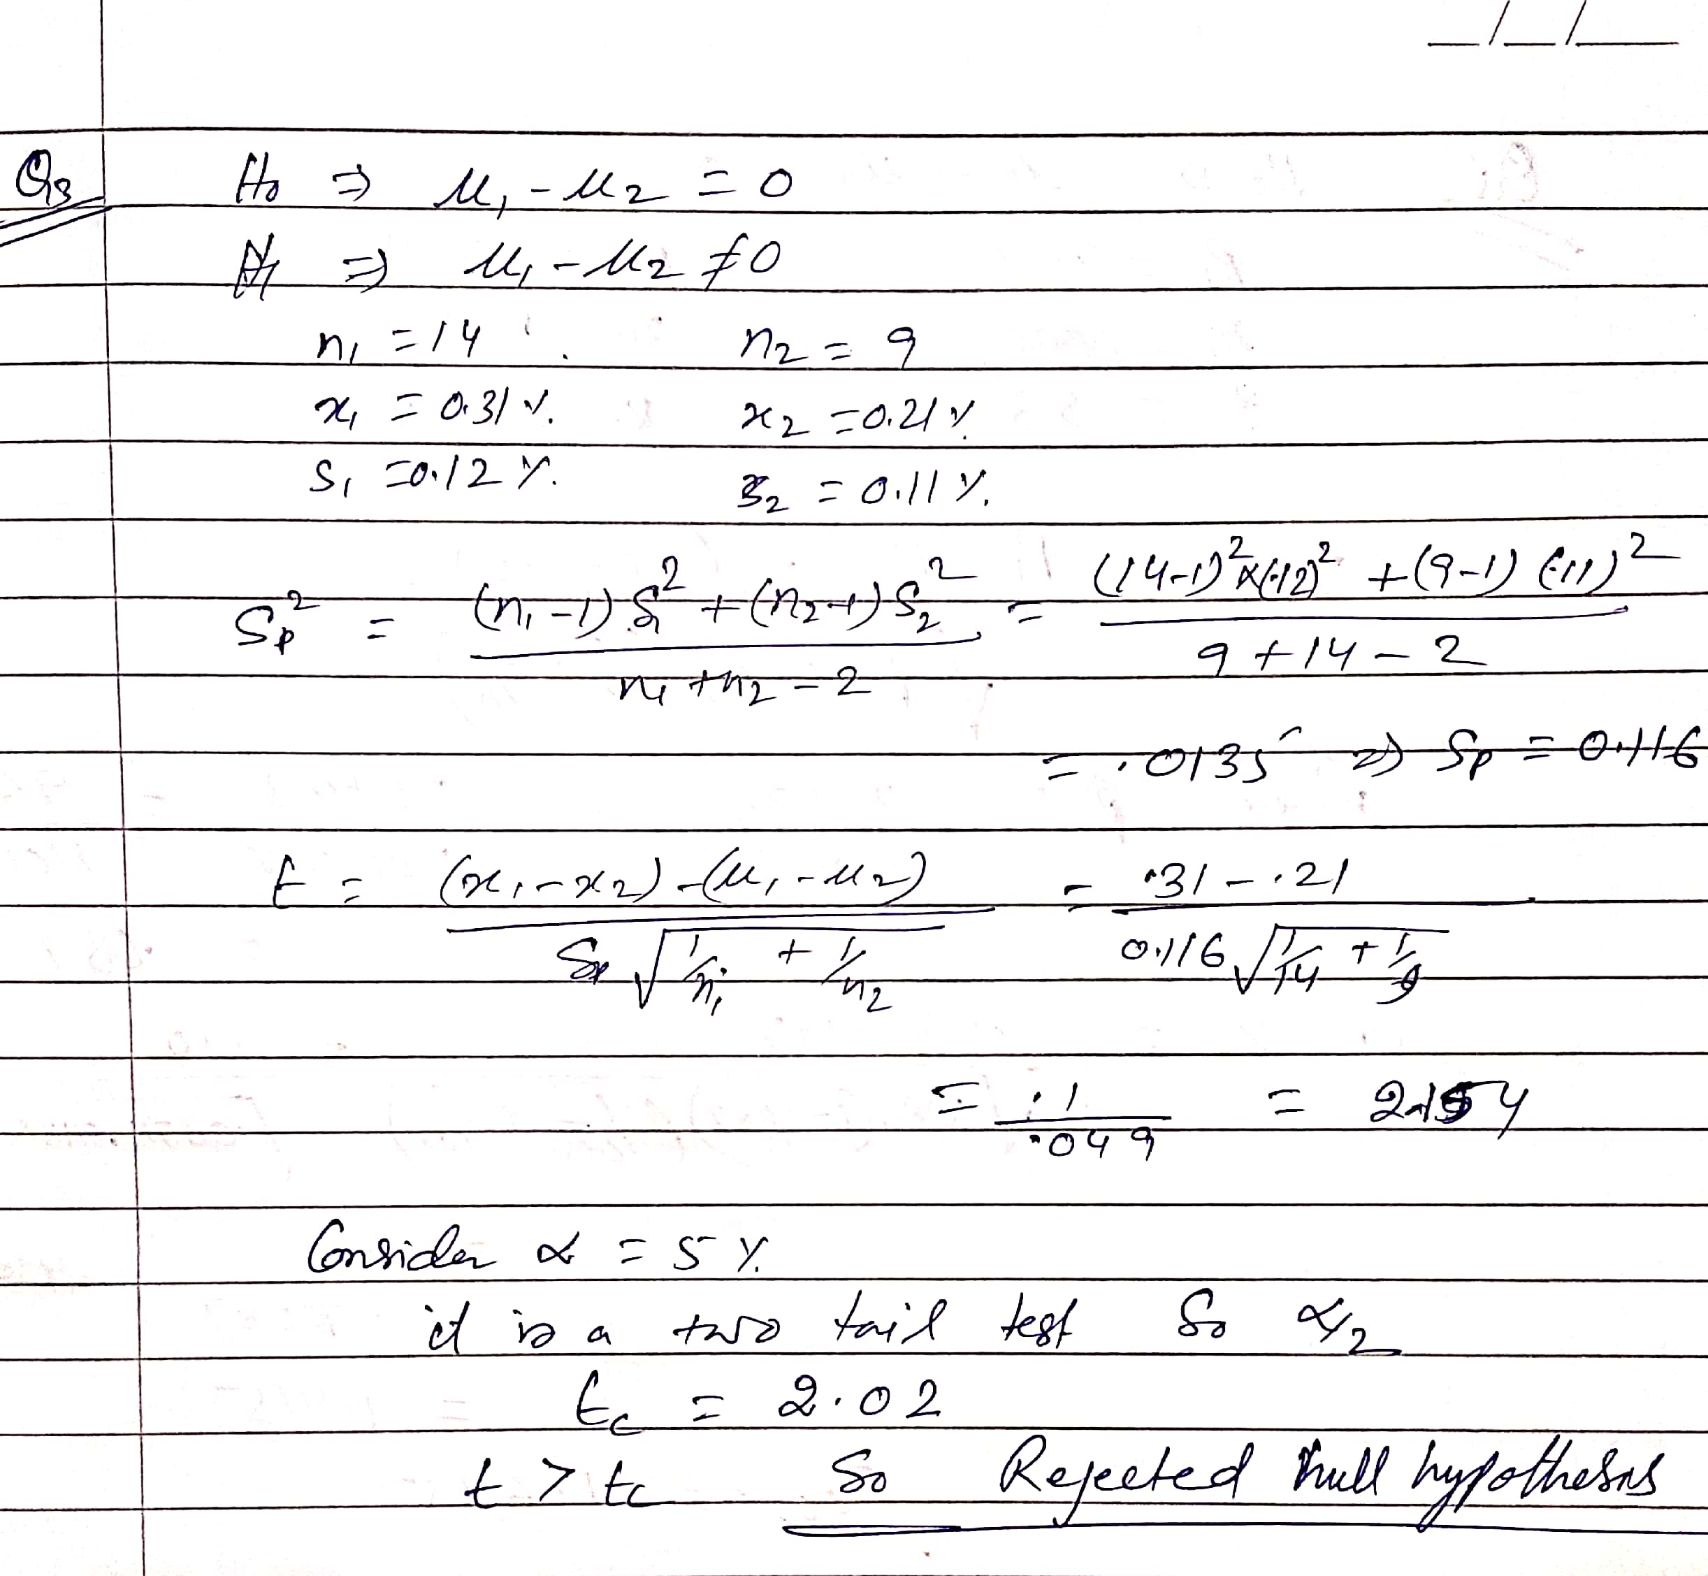 _/_/_
Q3 H0 ⇒ μ1 - μ2 = 0
H1 ⇒ μ1 - μ2 ≠ 0
n1 = 14 n2 = 9
x1 = 0.31 %. x2 = 0.21 %
S1 = 0.12 %. S2 = 0.11 %.
Sp² = ((n1 - 1) S1² + (n2 - 1) S2²) / (n1 + n2 - 2) = ((14-1)² × (.12)² + (9-1) (.11)²) / (9 + 14 - 2)
= .0135 ⇒ Sp = 0.116
t = ((x1 - x2) - (μ1 - μ2)) / (Sp √(1/n1 + 1/n2)) = (.31 - .21) / (0.116 √(1/14 + 1/9))
= .1 / .049 = 2.154
Consider α = 5 %.
it is a two tail test So α/2
tc = 2.02
t > tc So Rejected null hypothesis